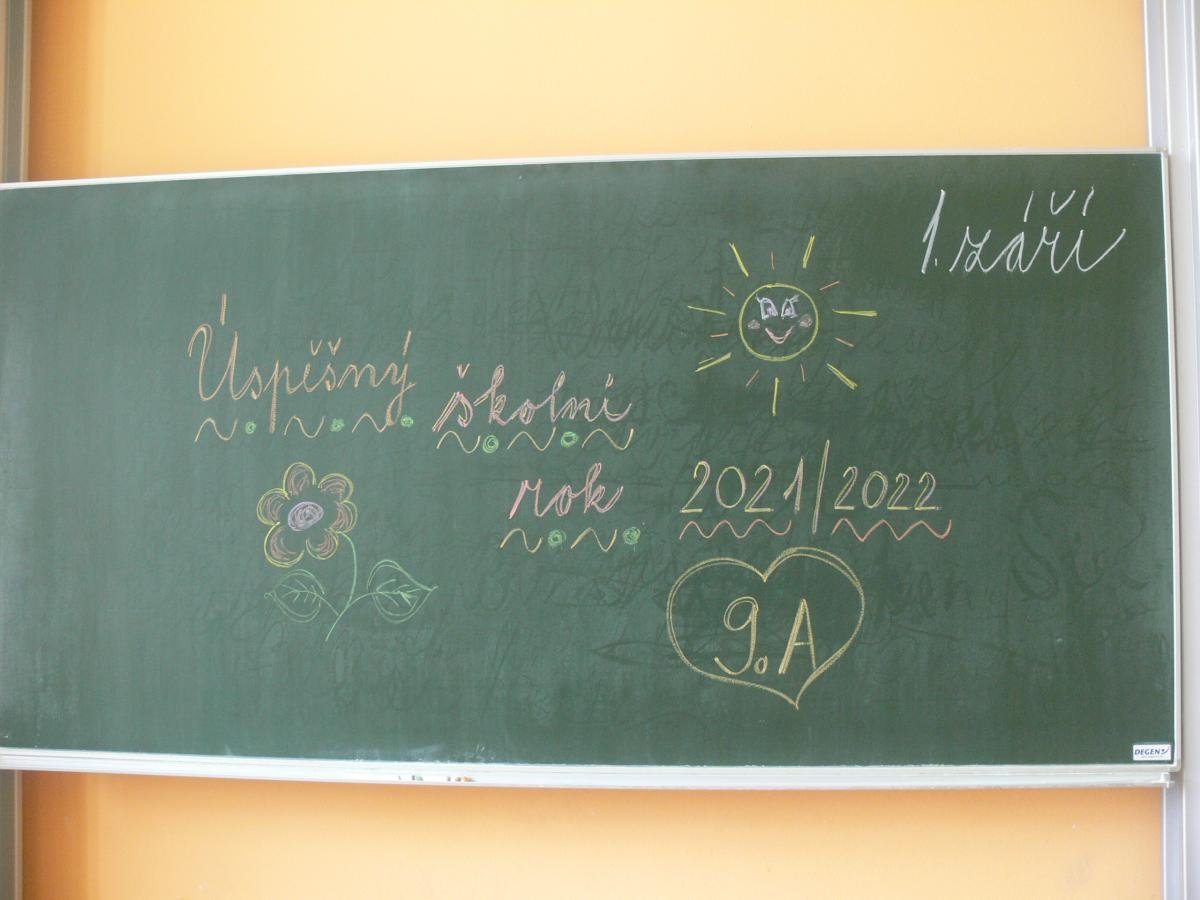 1. září
Úspěšný školní
rok 2021/2022
9.A
DEGEN